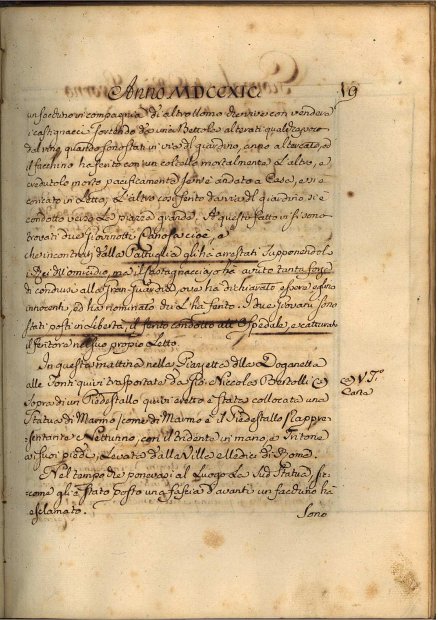 Anno MDCCXIC. 19
un facchino in compagnia d'altro Uomo che vive con vendere
i castagnacci sortendo d'una Bettola alterati qualche poco
dal vino quando sono stati in via del giardino, anno altercato, e
il facchino ha ferito con un coltello mortalmente l'altro, e
credutolo morto, pacificamente se n'è andato a Casa, e si è
coricato in Letto; L'altro così ferito da via del giardino si è
condotto verso la piazza grande. A questo fatto vi si sono
trovati due Giovinotti
che incontrati dalla Pattuglia gli ha arrestati supponendoli
i Rei d'Omicidio, ma il Castagnacciajo ha avuto tanta forza
di condursi alla Gran Guardia, ove ha dichiarato essere eglino
innocenti, ed ha nominato chi l'ha ferito. I due giovani sono
stati posti in Libertà, il ferito condotto allo Spedale, e catturato
il feritore nel suo proprio Letto.
In questa mattina nella Piazzetta della Doganetta
alle Fonti quivi trasportate da S. Niccola Bertolli
Sopra di un Piedestallo quivi eretto è Stata collocata una
Statua di Marmo, come di Marmo è il Piedestallo rappre-
sentante Nettunno, con il tridente in mano, e Tritone
a' suoi piedi, Levata dalla Villa Medici di Roma.
Nel tempo che ponevasi al Luogo La Sud.a Statua, sic-
come gli è stato posto una fascia d'avanti un facchino ha
esclamato.
Sono
V. J.o
Carta